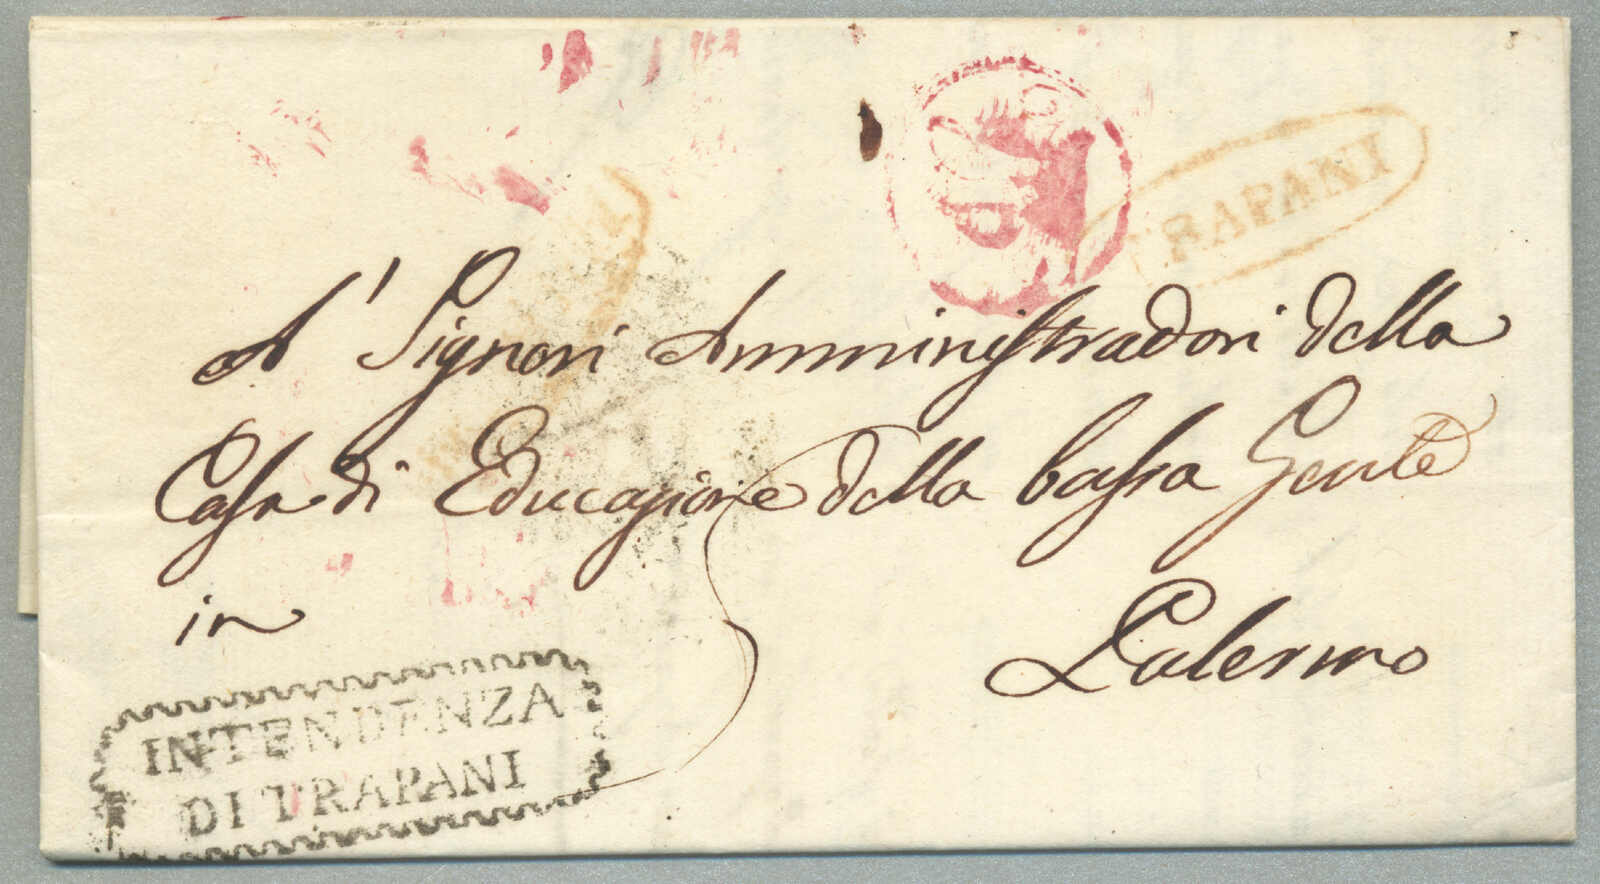 TRAPANI
A' Signori Amministradori della
Casa di Educazione della bassa Gente
in
Palermo
INTENDENZA
DI TRAPANI